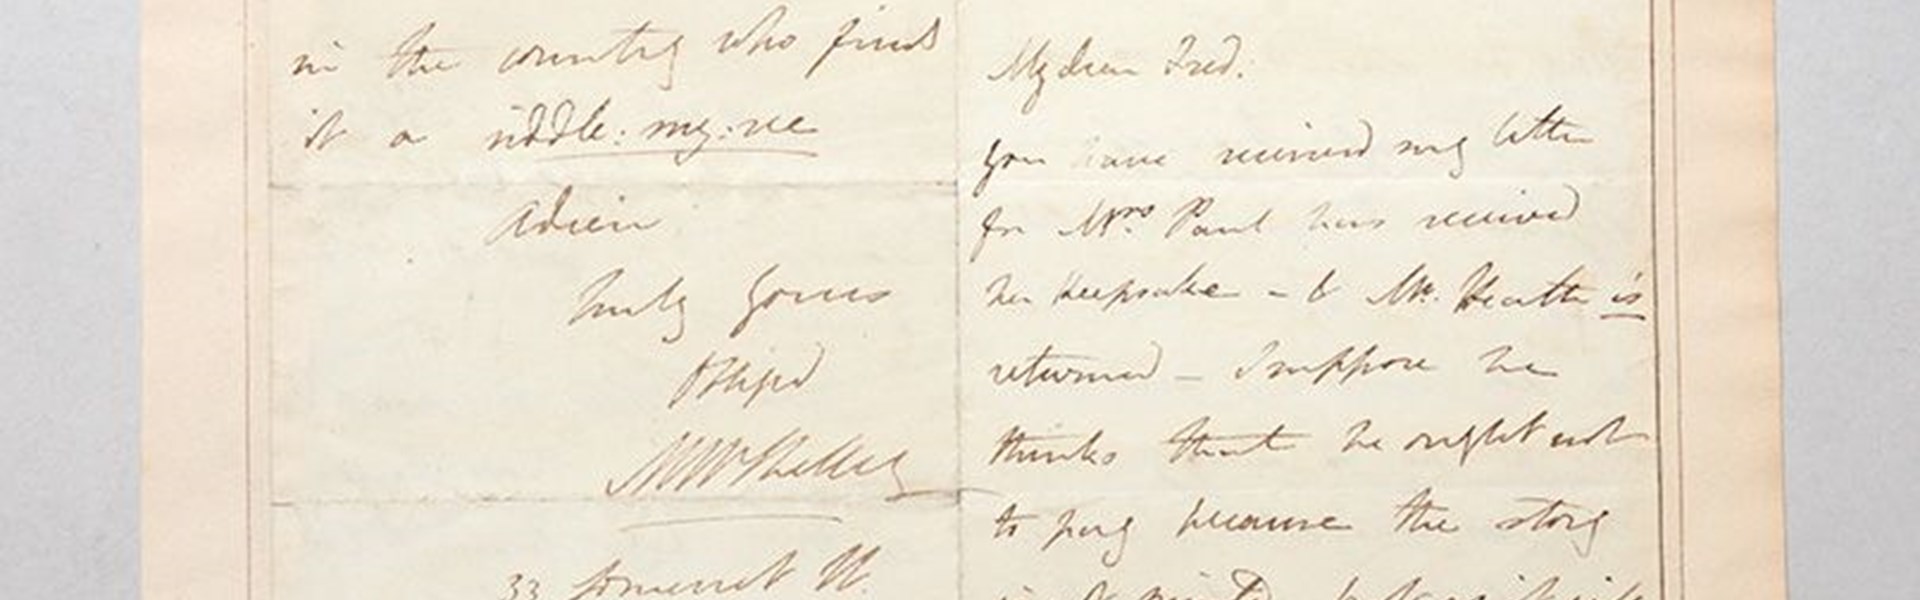 in the country who finds
it a riddle: my: ree
Adieu
Truly Yours
Obliged
MW Shelley
33 Somerset St.
My dear Fred:
You have received my letter
for Mrs. Paul has received
her Keepsake - & Mr. Heath is
returned - I suppose he
thinks that he ought not
to pay because the story